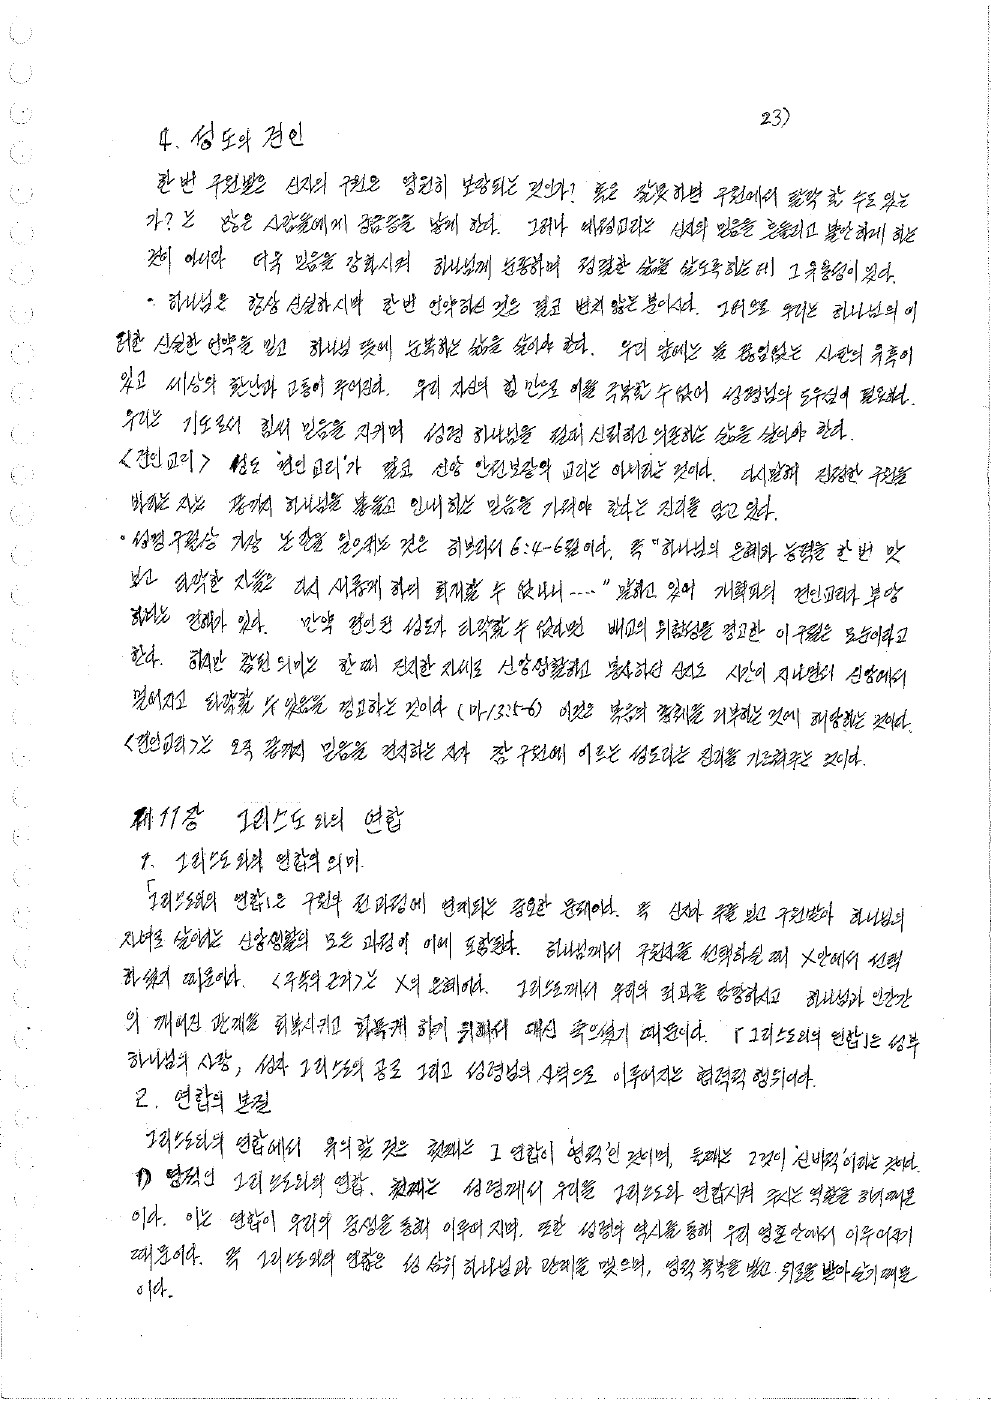 23)
4. 성도의 견인
한번 구원받은 신자의 구원은 영원히 보장되는 것인가? 혹은 잘못하면 구원에서 탈락 할 수도 있는
가? 는 많은 사람들에게 궁금증을 낳게 한다. 그러나 예정교리는 신자의 믿음을 흔들리고 불안하게 하는
것이 아니라 더욱 믿음을 강화시켜 하나님께 순종하며 정결한 삶을 살도록하는데 그 유용성이 있다.
· 하나님은 항상 신실하시며 한번 언약하신 것은 결코 변치 않는 분이시다. 그러므로 우리는 하나님의 이
러한 신실한 언약을 믿고 하나님 뜻에 순복하는 삶을 살아야 한다. 우리 앞에는 늘 끊임없는 사탄의 유혹이
있고 세상의 환난과 고통이 주어진다. 우리 자신의 힘만으로 이를 극복할 수 없어 성령님의 도우심이 필요하다.
우리는 기도로서 힘써 믿음을 지키며 성령 하나님을 절대 신뢰하고 의존하는 삶을 살아야 한다.
<견인교리> 성도 '견인교리'가 결코 신앙 안전보장의 교리는 아니라는 것이다. 다시말해 진정한 구원을
바라는 자는 끝까지 하나님을 붙들고 인내하는 믿음을 가져야 한다는 진리를 담고 있다.
· 성경구절상 가장 논란을 일으키는 것은 히브리서 6:4-6절이다. 즉 "하나님의 은혜와 능력을 한번 맛
보고 타락한 자들은 다시 새롭게 하여 회개할 수 없나니····" 말하고 있어 개혁파의 견인교리가 부당
하다는 견해가 있다. 만약 견인된 성도가 타락할 수 없다면 배교의 위험성을 경고한 이 구절은 모순이라고
한다. 하지만 참된 의미는 한때 진지한 자세로 신앙생활하고 봉사하던 신자도 시간이 지나면서 신앙에서
멀어지고 타락할 수 있음을 경고하는 것이다 (마13:5-6) 이것은 복음의 은혜를 거부하는 것에 해당하는 것이다.
<견인교리>는 오직 끝까지 믿음을 견지하는 자가 참 구원에 이르는 성도라는 진리를 가르쳐주는 것이다.
제11장 그리스도와의 연합
1. 그리스도와의 연합의 의미.
「그리스도와의 연합」은 구원의 전과정에 연계되는 중요한 문제이다. 즉 신자가 주를 믿고 구원받아 하나님의
자녀로 살아가는 신앙생활의 모든 과정이 이에 포함된다. 하나님께서 구원자를 선택하실 때 X안에서 선택
하셨기 때문이다. <구속의 근거>는 X의 은혜이다. 그리스도께서 우리의 죄과를 담당하시고 하나님과 인간간
의 깨어진 관계를 회복시키고 화목케 하기 위해서 대신 죽으셨기 때문이다. 「그리스도와의 연합」은 성부
하나님의 사랑, 성자 그리스도의 공로 그리고 성령님의 사역으로 이루어지는 협력적 행위이다.
2. 연합의 본질
그리스도와의 연합에서 유의할 것은 첫째는 그 연합이 '영적'인 것이며, 둘째는 그것이 '신비적'이라는 것이다.
1) 영적인 그리스도와의 연합. 첫째는 성령께서 우리를 그리스도와 연합시켜 주시는 역할을 하기때문
이다. 이는 연합이 우리의 중생을 통해 이루어지며. 또한 성령의 역사를 통해 우리 영혼안에서 이루어지기
때문이다. 즉 그리스도와의 연합은 성 삼위 하나님과 관계를 맺으며, 영적 축복을 받고 위로를 받아 살기 때문
이다.